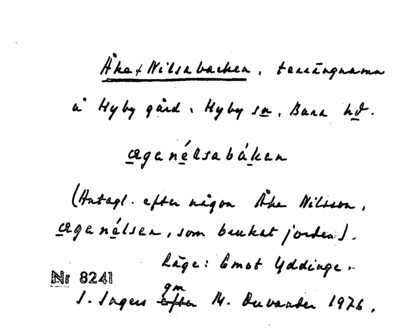 Åke Nilsabacken, terrängnamn
å Hyby gård, Hyby sn, Bara hd.
œganélsabákan
(Antagl. efter någon Åke Nilsson,
œganélsen, som brukat jorden).
Läge: Emot Yddinge.
Nr 8241
gm
S. Ingers efter M. December 1976.